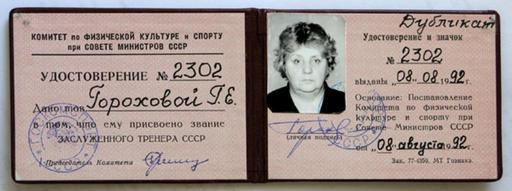 КОМИТЕТ ПО ФИЗИЧЕСКОЙ КУЛЬТУРЕ И СПОРТУ
при СОВЕТЕ МИНИСТРОВ СССР
УДОСТОВЕРЕНИЕ № 2302
Дано тов. Гороховой Г.Е.
в том, что ему присвоено звание
ЗАСЛУЖЕННОГО ТРЕНЕРА СССР
Председатель Комитета
Дубликат
Удостоверение и значок
№ 2302
выданы "08" 08 1992 г.
Основание: Постановление
Комитета по физической
культуре и спорту при
Совете Министров СССР
от "08" августа 1992 г.
(личная подпись)
Зак. 77-4350. МТ Гознака.